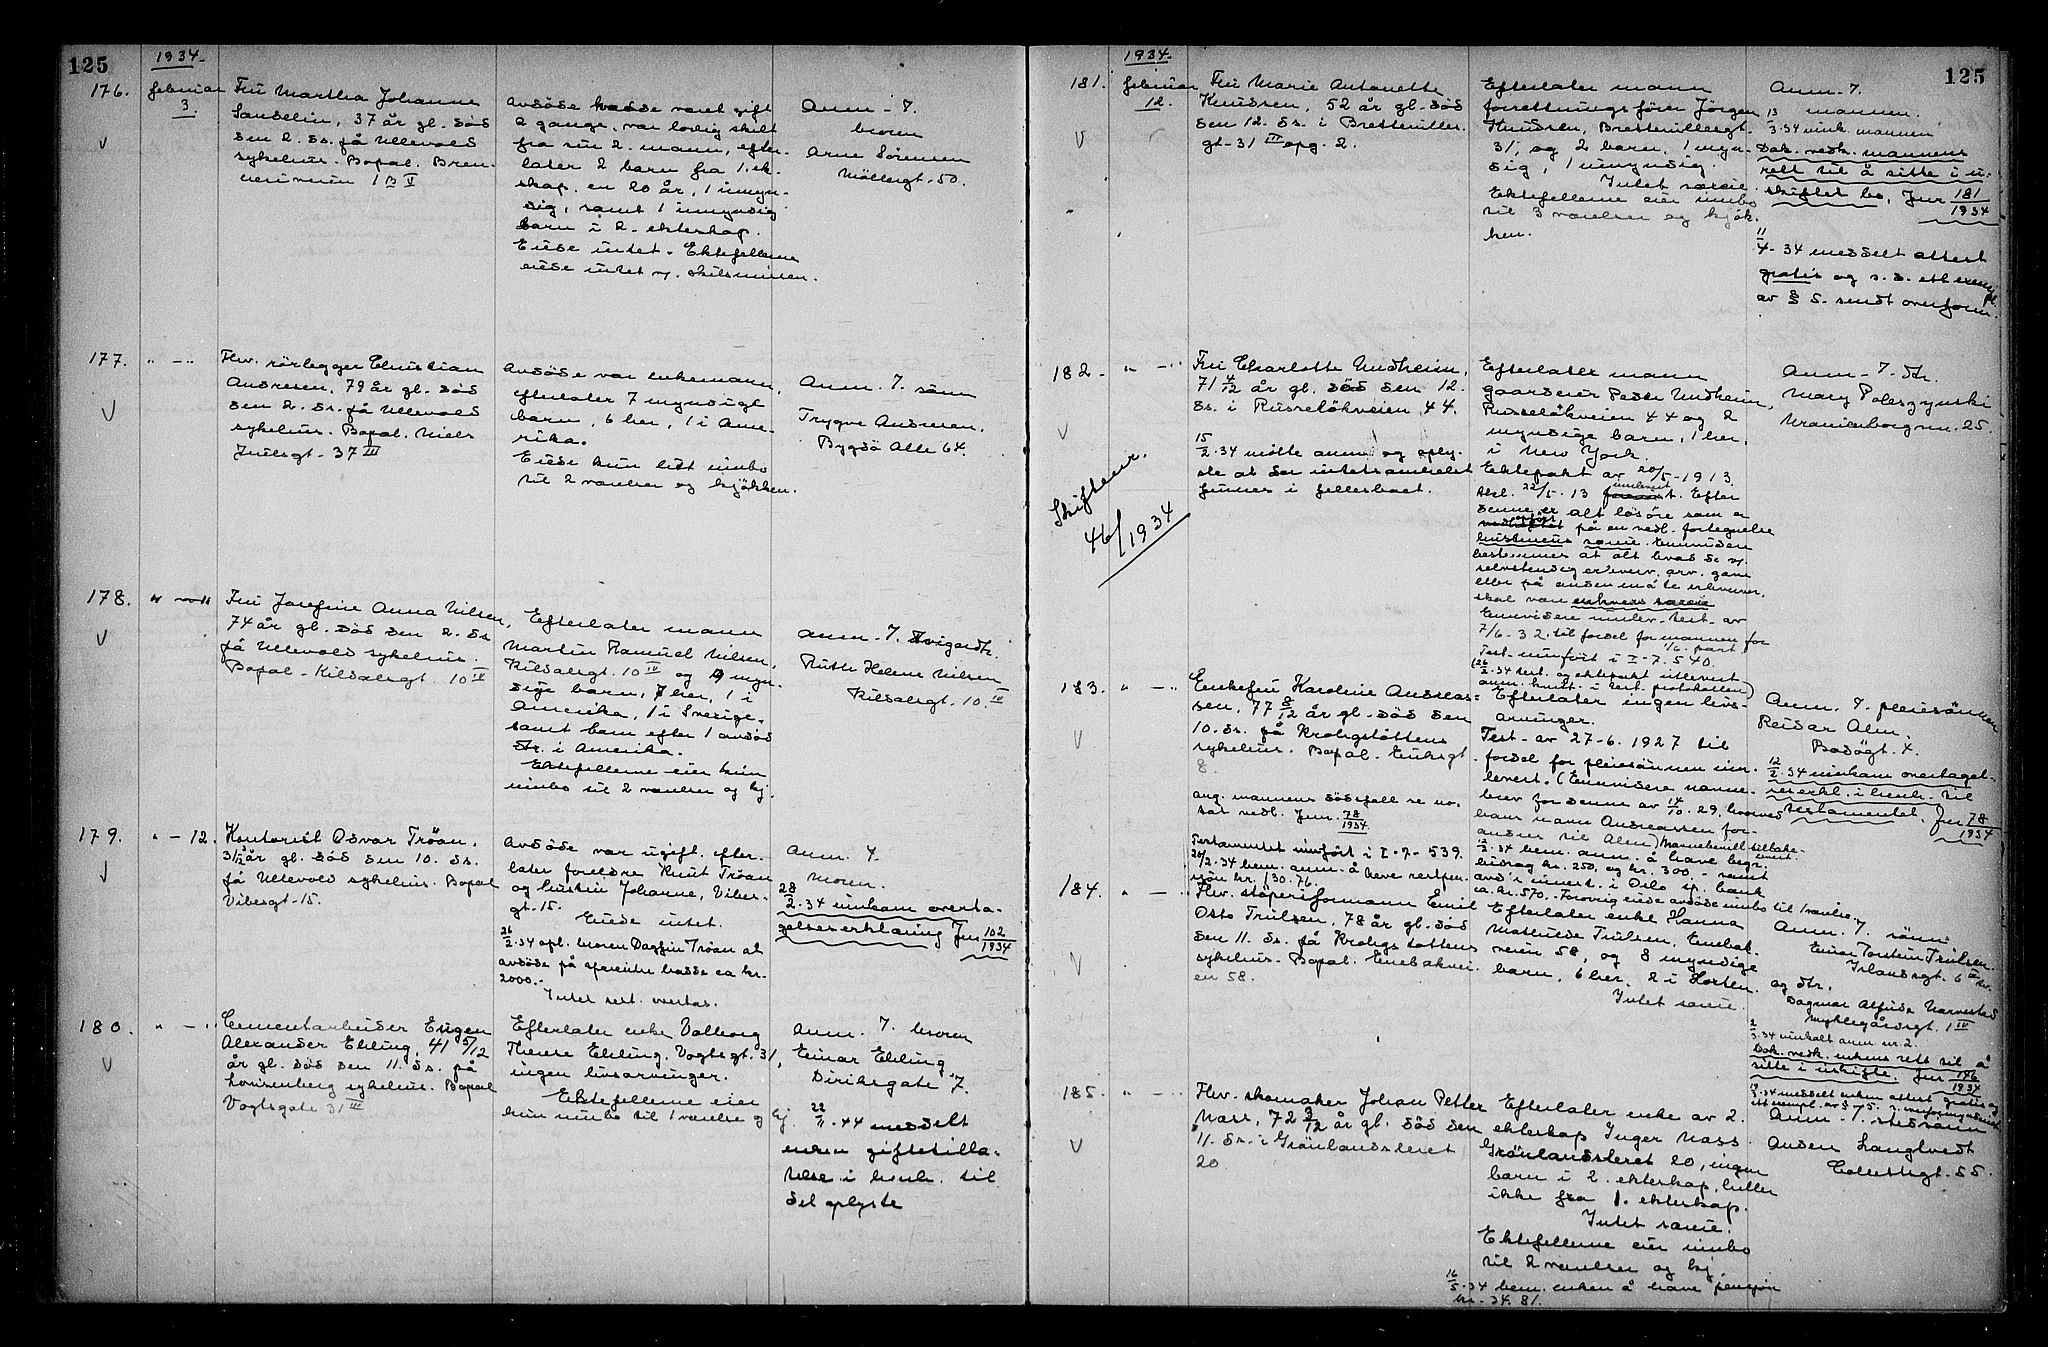 125
1934.
176.
februar
3.
Fru Martha Johanne
Sandelin, 37 år gl. död
den 2. ds. på Ullevold
sykehus. Bopal. Bren-
neriveien 1 B V
Avdöde hadde vært gift
2 gange, var lovlig skilt
fra sin 2. mann, efter-
later 2 barn fra 1. ek-
skap, en 20 år, 1 umyn-
dig, samt 1 umyndig
barn i 2. ekteskap.
Eiede intet. Ektefellerne
eiede intet v. skilsmissen.
Anm. 7.
broren
Arne Sörensen
Möllergt. 50.
177.
" - "
Fhv. rörlegger Christian
Andresen, 79 år gl. död
den 2. ds. på Ullevold
sykehus. Bopal. Niels
Juulsgt. 37 III
Avdöde var enkemann,
efterlater 7 myndige
barn, 6 her, 1 i Ame-
rika.
Eiede kun litt innbo
til 2 værelser og kjökken.
Anm. 7. sönn
Trygve Andresen,
Bygdö Alle 64.
178.
Fru Josefine Anna Nilsen,
74 år gl. död den 2. ds.
på Ullevold sykehus.
Bopal. Kildalsgt. 10 IV
Efterlater mann
Martin Samuel Nilsen,
Kildalsgt. 10 IV og 9 myn-
dige barn, 7 her, 1 i
Amerika, 1 i Sverige,
samt barn efter 1 avdöd
dtr. i Amerika.
Ektefellerne eier kun
innbo til 2 værelser og kj.
Anm. 7. svigerdtr.
Ruth Helene Nilsen
Kildalsgt. 10 IV
179.
" - 12.
Kontorist Osvar Tröan,
år gl. död den 10. ds.
på Ullevold sykehus. Bopal
Vibesgt. 15.
Avdöde var ugift, efter-
later foreldre Knut Tröan
og hustru Johanne, Vibes-
gt. 15.
Eiede intet.
26/2.34 opl. broren Dagfin Tröan at
avdöde på sparebr. hadde ca. kr.
2000.-
Intet test. overtas.
Anm. 4.
Moren.
28/2.34 innkom overta-
gelseserklæring Jnr 102/1934
180.
" - "
Cementarbeider Eugen
Alexander Ebling, 41 5/12
år gl. död den 11. ds. på
Lovisenberg sykehus. Bopal
Vogtsgate 31 III
Efterlater enke Valborg
Therese Ebling, Vogtsgt. 31,
ingen livsarvinger.
Ektefellerne eier
kun innbo til 1 værelse og kj.
Anm. 7. broren
Einar Ebling,
Dirihsgate 7.
22/11.44 meddelt
enken giftetilla-
telse i henh. til
det oplyste
125
1934.
181.
februar
12.
Fru Marie Antonette
Knudsen, 52 år gl. död
den 12. ds. i Bretteviller-
gt. 31 III opg. 2.
Efterlater mann
forretningsförer Jörgen
Knudsen, Brettevillesgt.
31, og 2 barn, 1 myn-
dig, 1 umyndig.
Intet særeie.
Ektefellerne eier innbo
til 3 værelser og kjök-
ken.
Anm. 7.
mannen.
13/3.34 innk. mannen
Dok. vedk. mannens
rett til å sitte i u-
skiftet bo, Jnr 181/1934
11/4.34 meddelt attest
gratis og s. d. ett exempl.
av § 5. sendt overform.
182.
" - "
Skiftenr.
46/1934
Fru Charlotte Undheim,
71 4/12 år gl. död den 12.
ds. i Russelökveien 44.
15/2.34 mötte anm. og oply-
ste at der intetsomhelst
finnes i fellesboet.
Efterlater mann
gaardeier Peder Undheim,
Russelökveien 44 og 2
myndige barn, 1 her,
i New York.
Ektepakt av 20/5-1913
tinl. 22/5.13 innlevert. Efter
denne er alt lösöre som er
opfört på en vedl. fortegnelse
hustruens særeie. Ennvidere
bestemmes at alt hvad de v.
selvstendig erhverv, arv, gave
eller på anden måte erhverver,
skal være enhvers særeie
Ennvidere innlev. test. av
7/6-32. til fordel for mannen for
1/6. part
Test. innfört i I-7.540.
26/2.34 test. og ektepakt utlevert
anm. kvitt. i test. protokollen)
Anm. 7. dtr.
Mary Poleszynski
Uranienborgvn. 25.
183.
" - "
Enkefru Karoline Andreas-
sen, 77 8/12 år gl. död den
10. ds. på Krohgstöttens
sykehus. Bopal. Eriksgt.
8.
ang. mannens dödsfall se no-
tat vedl. Jnr. 78/1934
Testamentet innfört i I-7-539.
26/2.34 bem. anm. å heve restpen-
sjon kr. 130.76.
Efterlater ingen livs-
arvinger.
Test. av 27-6. 1927 til
fordel for pleiesönnen inn-
levert. (Ennvidere navne-
brev for denne av 14/10.29, hvorved
hans navn Andreassen for-
andres til Alen) Navnebevill. tilbake-
levert.
12/2.34 bem. anm. å heve begr.
bidrag kr. 250, og kr. 300,- resten
avd's innest. i Oslo sp. bank
ca. kr. 570. Forövrig eiede avdöde innbo til 1 værelse.
Anm. 7. pleiesönnen
Reidar Alen.
Bodögt. 4.
12/2.34 innkom overtagel-
seserkl. i henh. til
testamentet. Jnr 78/1934
184.
" - "
Fhv. stöperiformann Emil
Otto Trulsen, 78 år gl. död
den 11. ds. på Krohgstöttens
sykehus. Bopal. Enebakvei-
en 58.
Efterlater enke Hanna
Mathilde Trulsen, Enebak-
veien 58, og 8 myndige
barn, 6 her, 2 i Horten.
Intet særeie.
Anm. 7. sönn
Einar Torstein Trulsen.
Islandsgt. 6
og dtr.
Dagmar Alfide Narvestad
Myklegårdsgt. 1 IV
2/3.34 innkalt anm. nr. 2.
Dok. vedk. enkens rett til å
sitte i uskifte. Jnr 146/1934
19/3.34 meddelt enken attest gratis og
185.
" - "
Fhv. skomaker Johan Petter
Næss, 72 9/12 år gl. död den
11. ds. i Grönlandsleret
20.
Efterlater enke av 2.
ekteskap Inger Næss.
Grönlandsleret 20, ingen
barn i 2. ekteskap, heller
ikke fra 1. ekteskap.
Intet særeie.
Ektefellerne eier innbo
til 2 værelser og kj.
16/5.34 bem. enken å heve pensjon
kr. 34.81.
Anm. 7. stedsönn
Anden Langtvedt
Eilertsgt. 55.